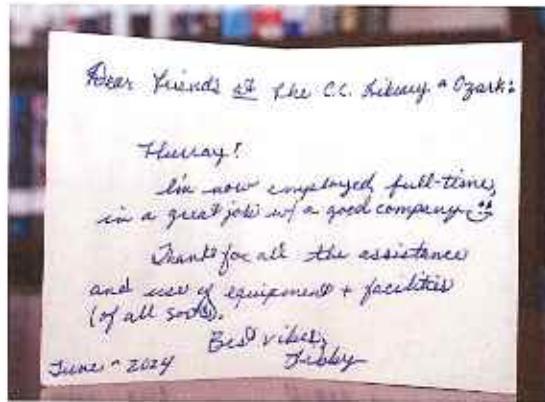 Dear Friends at the C.C. Library - Ozark:
Hurray!
I'm now employed, full-time,
in a great job w/ a good company.
Thanks for all the assistance
and use of equipment + facilities
(of all sorts).
Best vibes,
Libby
June - 2024